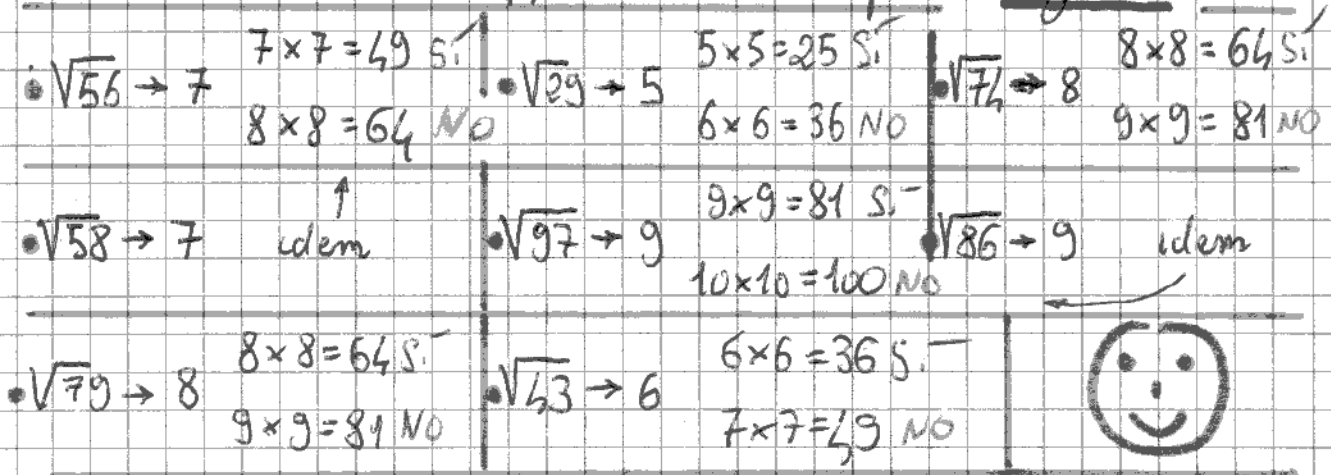 • √56 → 7 7 × 7 = 49 Sí
8 × 8 = 64 NO
• √29 → 5 5 × 5 = 25 Sí
6 × 6 = 36 NO
• √74 → 8 8 × 8 = 64 Sí
9 × 9 = 81 NO
• √58 → 7 ↑ idem
• √97 → 9 9 × 9 = 81 Sí
10 × 10 = 100 NO
• √86 → 9 idem ←
• √79 → 8 8 × 8 = 64 Sí
9 × 9 = 81 NO
• √43 → 6 6 × 6 = 36 Sí
7 × 7 = 49 NO